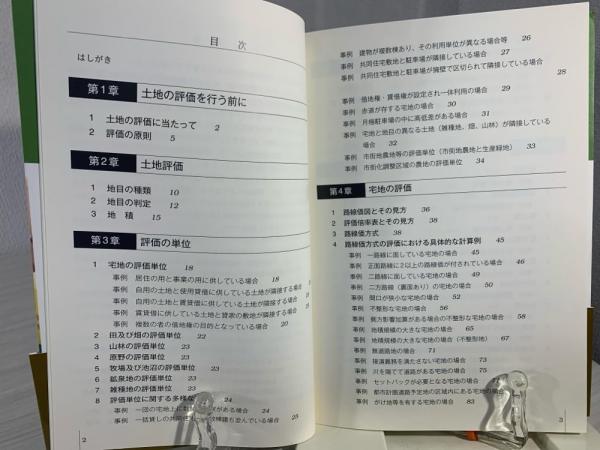 目 次
はしがき
第1章 土地の評価を行う前に
1 土地の評価に当たって 2
2 評価の原則 5
第2章 土地評価
1 地目の種類 10
2 地目の判定 12
3 地 積 15
第3章 評価の単位
1 宅地の評価単位 18
事例 居住の用と事業の用に供している場合 18
事例 自用の土地と使用貸借に供している土地が隣接する場合
事例 自用の土地と賃貸借に供している土地が隣接する場合
事例 賃貸借に供している土地と貸家の敷地が隣接する場合
事例 複数の者の借地権の目的となっている場合 20
2 田及び畑の評価単位 22
3 山林の評価単位 23
4 原野の評価単位 23
5 牧場及び池沼の評価単位 23
6 鉱泉地の評価単位 23
7 雑種地の評価単位 23
8 評価単位に関する多様な 24
事例 一団の宅地上に がある場合 24
事例 一括貸しの共同住 も並んでいる場合 25
2
事例 建物が複数棟あり、その利用単位が異なる場合等 26
事例 共同住宅敷地と駐車場が隣接している場合 27
事例 共同住宅敷地と駐車場が擁壁で区切られて隣接している場合
28
事例 借地権・賃借権が設定され一体利用の場合 29
事例 赤道が存する宅地の場合 30
事例 月極駐車場の中に高低差がある場合 31
事例 宅地と地目の異なる土地（雑種地、畑、山林）が隣接している
場合 32
事例 市街地農地等の評価単位（市街地農地と生産緑地） 33
事例 市街化調整区域の農地の評価単位 34
第4章 宅地の評価
1 路線価図とその見方 36
2 評価倍率表とその見方 38
3 路線価方式 38
4 路線価方式の評価における具体的な計算例 45
事例 一路線に面している宅地の場合 45
事例 正面路線に2以上の路線価が付されている場合 46
事例 二路線に面している宅地の場合 49
事例 二方路線（裏面あり）の宅地の場合 50
事例 間口が狭小な宅地の場合 52
事例 不整形な宅地の場合 56
事例 側方影響加算がある場合の不整形な宅地の場合 58
事例 地積規模の大きな宅地の場合 65
事例 地積規模の大きな宅地の場合（不整形地） 67
事例 無道路地の場合 71
事例 接道義務を満たさない宅地の場合 73
事例 川を隔てて道路がある宅地の場合 75
事例 セットバックが必要となる宅地の場合
事例 都市計画道路予定地の区域内にある宅地の場合
事例 がけ地等を有する宅地の場合 83
3